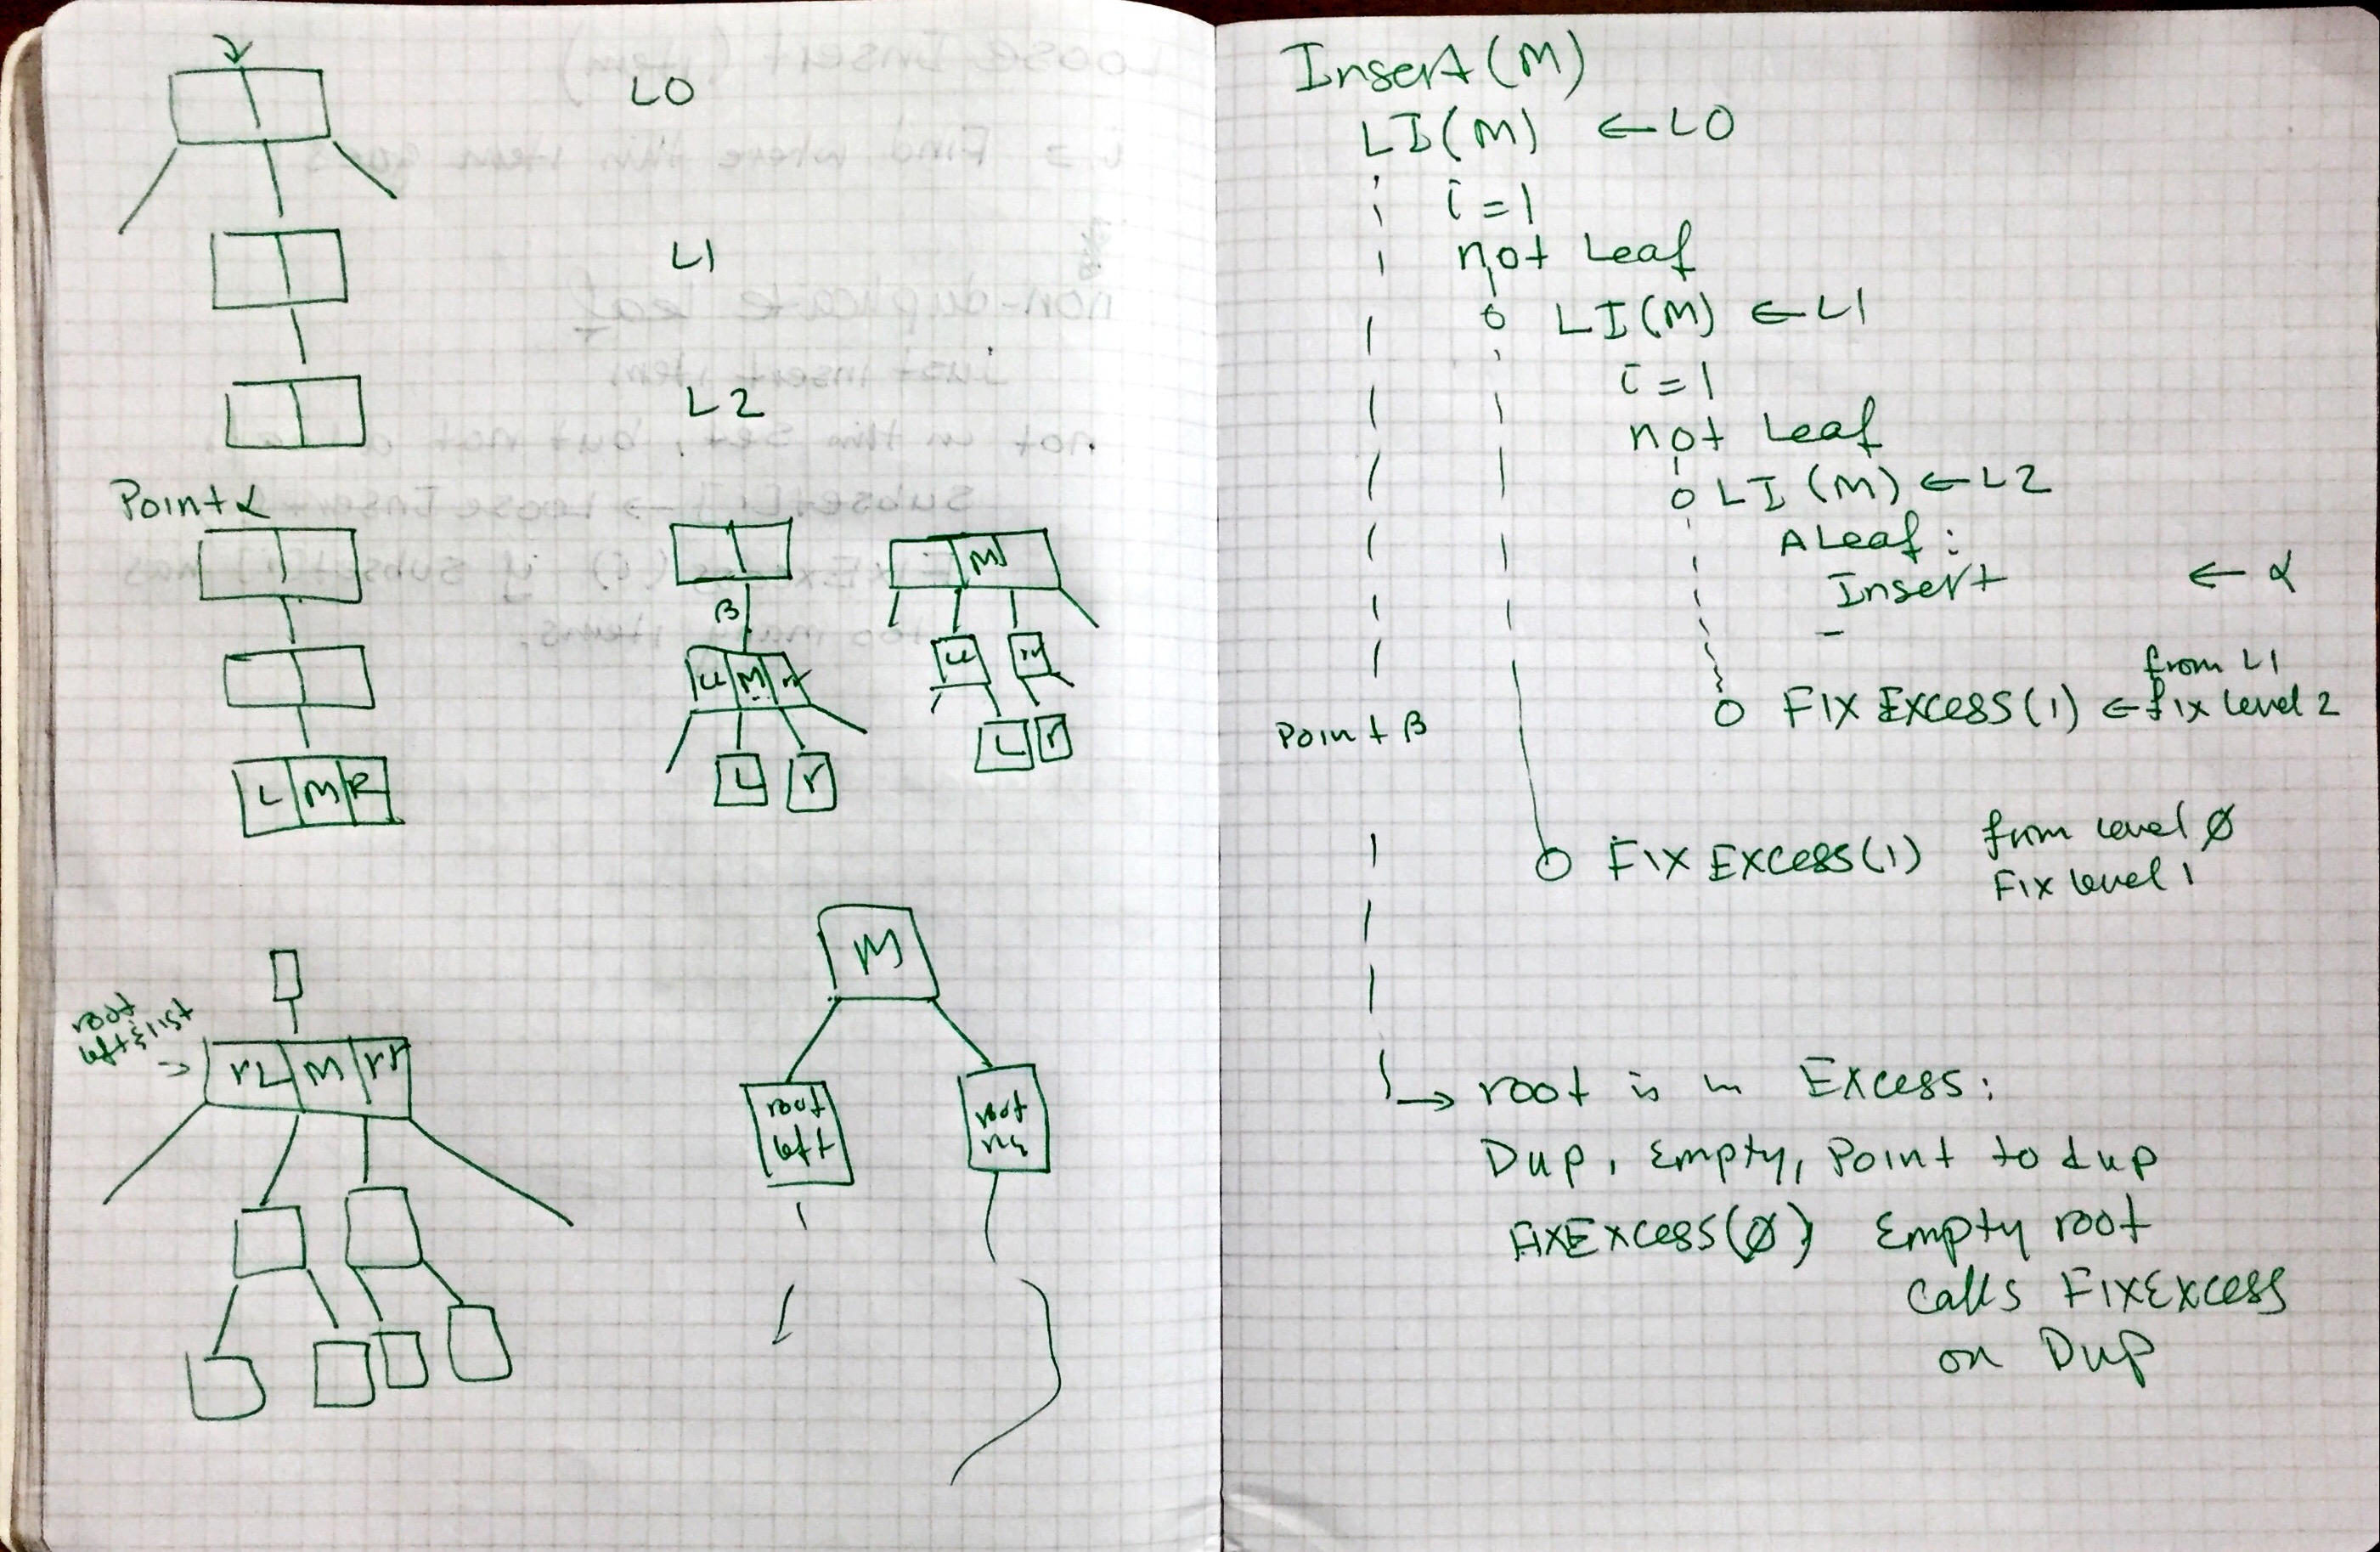 L0
L1
L2
Point α
L M R
β
u M r
L r
M
u r
L r
root
left list
rL M rr
M
root
left
root
Insert(M)
LI(M) ← L0
i = 1
not Leaf
LI(M) ← L1
i = 1
not Leaf
LI(M) ← L2
A Leaf:
Insert ← α
from L1
FIX EXCESS(1) ← fix level 2
Point β
FIX EXCESS(1) from level Ø
Fix level 1
→ root is in Excess:
Dup, Empty, Point to dup
FIXEXCESS(Ø) Empty root
calls FIXEXCESS
on Dup